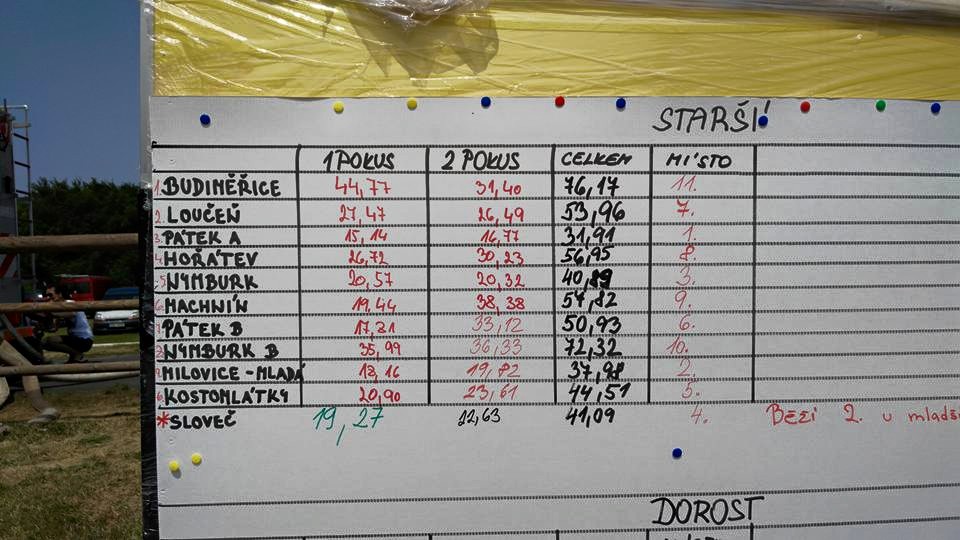 STARŠÍ
1 POKUS 2 POKUS CELKEM MÍSTO
1. BUDIMĚŘICE 44,77 31,40 76,17 11.
2. LOUČEŇ 27,47 26,49 53,96 7.
3. PÁTEK A 15,14 16,77 31,91 1.
4. HOŘATEV 26,72 30,23 56,95 8.
5. NYMBURK 20,57 20,32 40,89 3.
6. MACHNÍN 19,44 38,38 57,82 9.
7. PÁTEK B 17,81 33,12 50,93 6.
8. NYMBURK B 35,99 36,33 72,32 10.
9. MILOVICE - MLADÁ 18,16 19,82 37,98 2.
KOSTOMLÁTKY 20,90 23,61 44,51 5.
*SLOVEČ 19,27 22,63 41,09 4. BEZI 2. u mladší
DOROST